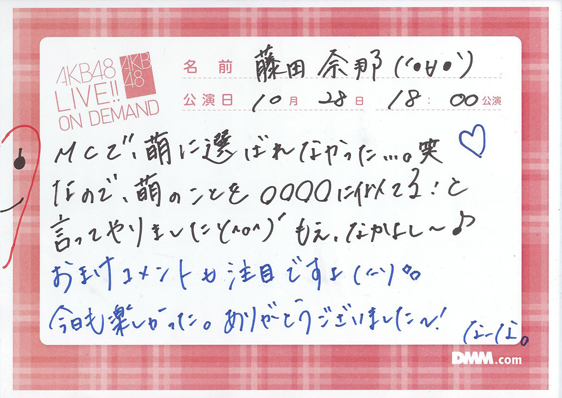 AKB48
LIVE!!
ON DEMAND
AKB
48
名前 藤田奈那(('•∀•'))
公演日 10月28日 18:00公演
MCで、萌に選ばれなかった…。笑♡
なので、萌のことを○○○○に似てる!と
言ってやりましたヾ(^o^)ノ もえ、なかよし〜♪
おまけコメントも注目ですよ(ーー)。
今日も楽しかった。ありがとうございました〜!
なーな。
DMM.com